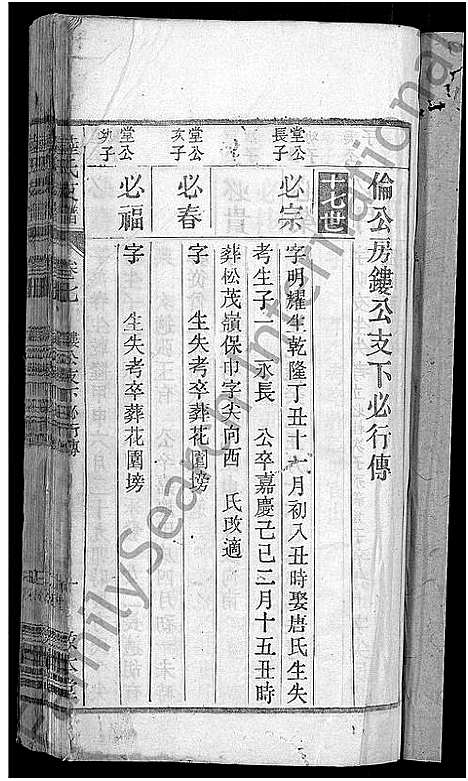 倫公房鏤公支下必行傳
十七世
堂公長子
必宗
字明耀生乾隆丁丑十六月初入丑時娶唐氏生失
考生子一永長 公卒嘉慶己巳二月十五丑時
葬松茂嶺保巾字尖向西 氏改適
堂公次子
必春
字 生失考卒葬花園塝
堂公幼子
必福
字 生失考卒葬花園塝
氏支譜
卷七 鏤公支下必行傳
FamilySearch International